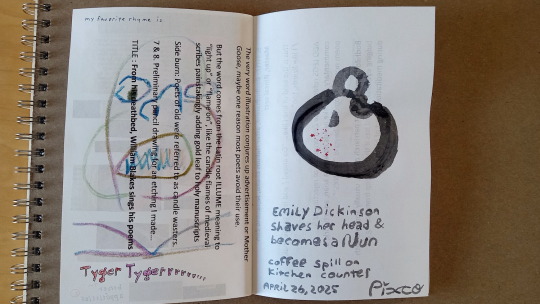 my favorite rhyme is
The very word illustration conjures up advertisement or Mother
Goose, maybe one reason most poets avoid their use.
But the word comes from the Latin root ILLUME meaning to
"light up" or "flame on", like the candle flames of medieval
scribes painstakingly adding gold leaf to holy manuscripts
Side burn: Poets of old were referred to as candle wasters.
7 & 8. Preliminary pencil drawing for an etching I made...
TITLE : From his deathbed, William Blakes sings his poems
Tyger Tygerrrrrr....
Emily Dickinson
shaves her head &
becomes a Nun
coffee spill on
kitchen counter
APRIL 26, 2025
Pixco